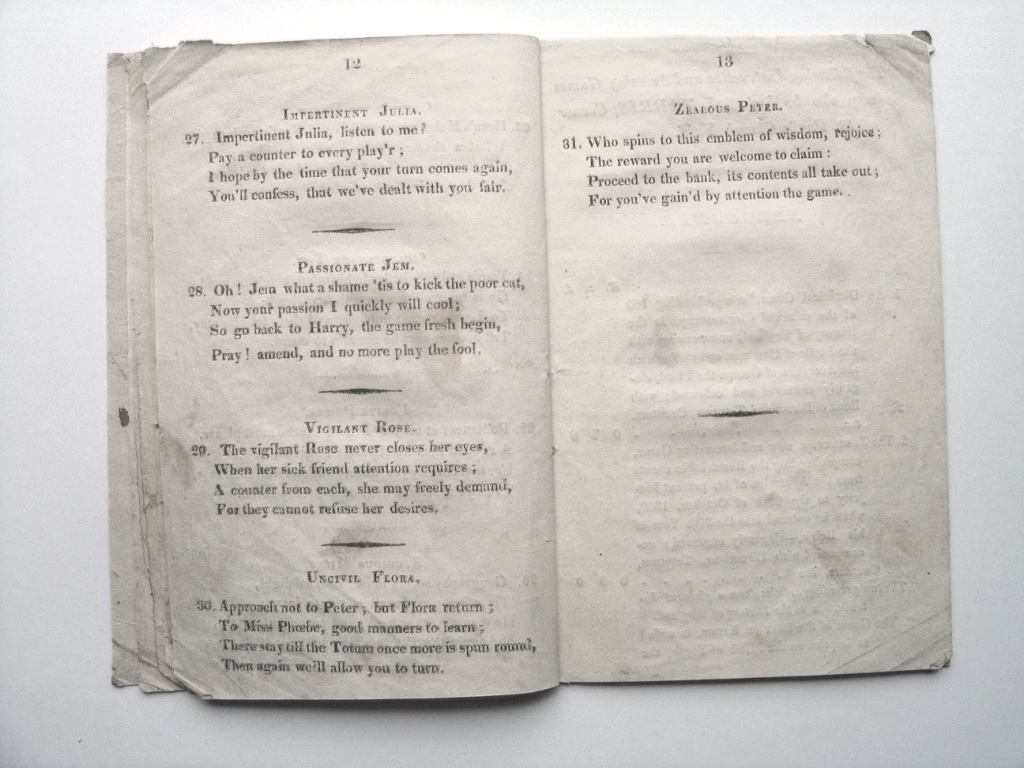 12
IMPERTINENT JULIA.
27. Impertinent Julia, listen to me?
Pay a counter to every play'r;
I hope by the time that your turn comes again,
You'll confess, that we've dealt with you fair.
PASSIONATE JEM.
28. Oh! Jem what a shame 'tis to kick the poor cat,
Now your passion I quickly will cool;
So go back to Harry, the game fresh begin,
Pray! amend, and no more play the fool.
VIGILANT ROSE.
29. The vigilant Rose never closes her eyes,
When her sick friend attention requires;
A counter from each, she may freely demand,
For they cannot refuse her desires.
UNCIVIL FLORA.
30. Approach not to Peter; but Flora return;
To Miss Phœbe, good manners to learn;
There stay till the Totum once more is spun round,
Then again we'll allow you to turn.
13
ZEALOUS PETER.
31. Who spins to this emblem of wisdom, rejoice;
The reward you are welcome to claim:
Proceed to the bank, its contents all take out;
For you've gain'd by attention the game.